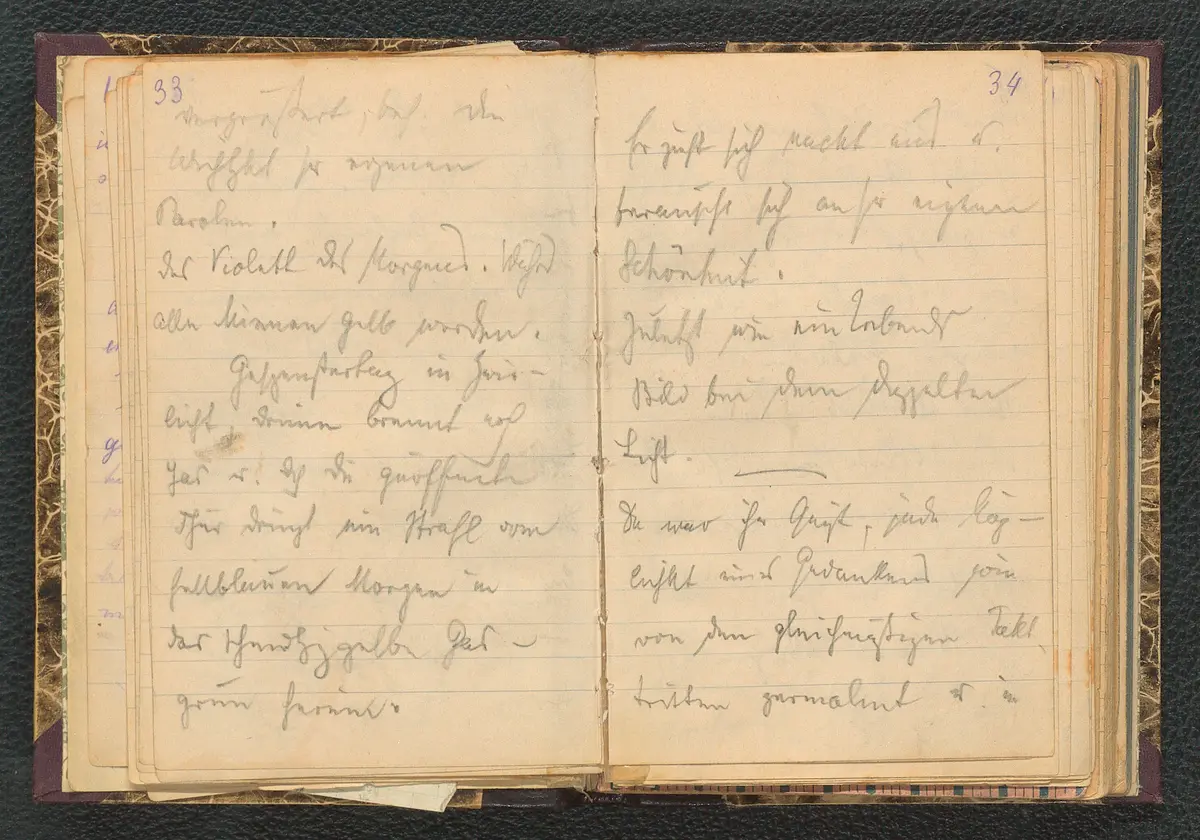 33
vergrößert, bes. die
Wichtgkt sr eigenen
Parolen.
das Violett des Morgens.
alle Mienen gelb werden.
Gespensterberg in Zwie-
licht, drinnen brennt noch
Gas u. dch die geöffnete
Thür dringt ein Strahl vom
hellblauen Morgen in
das schmutziggelbe Gas-
grün herein.
34
Er zieht sich nackt aus u.
berauscht sich an sr eignen
Schönheit.
Zuletzt wie ein lebends
Bild bei dem doppelten
Licht.
Da war ihr Geist, jede Mög-
lichkt eines Gedankens
von den gleichmäßigen Takt
tritten zermalmt u. in